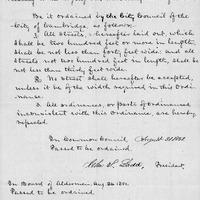 Be it ordained by the City Council of the
City of Cambridge, as follows:
1. All streets, hereafter laid out, which
shall be two hundred feet or more in length,
shall be not less than forty feet wide; and all
streets not two hundred feet in length, shall be
not less than thirty feet wide.
2. No street shall hereafter be accepted,
unless it be of the width required in this Ordi-
nance.
3. All ordinances, or parts of Ordinances
inconsistent with this Ordinance, are hereby
repealed.
In Common Council, August
Passed to be ordained.
John S. Ladd, President.
In Board of Aldermen, Aug. 26
Passed to be ordained.